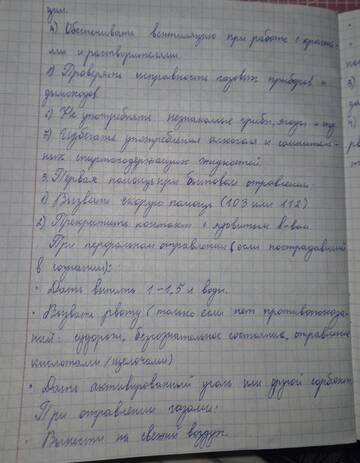 ции.
4) Обеспечивать вентиляцию при работе с краска-
ми и растворителями.
5) Проверять исправность газовых приборов и
дымоходов.
6) Не употреблять незнакомые грибы, ягоды и тд
7) Избегать употребления алкоголя и сомнитель-
ных спиртосодержащих жидкостей.
3. Первая помощь при бытовом отравлении:
1) Вызвать скорую помощь (103 или 112)
2) Прекратить контакт с ядовитым в-вом
При пероральном отравлении (если пострадавший
в сознании):
• Дать выпить 1-1,5 л воды.
• Вызвать рвоту (только если нет противопоказа-
ний: судороги, бессознательное состояние, отравление
кислотами/щелочами)
• Дать активированный уголь или другой сорбент
При отравлении газами:
• Вынести на свежий воздух.